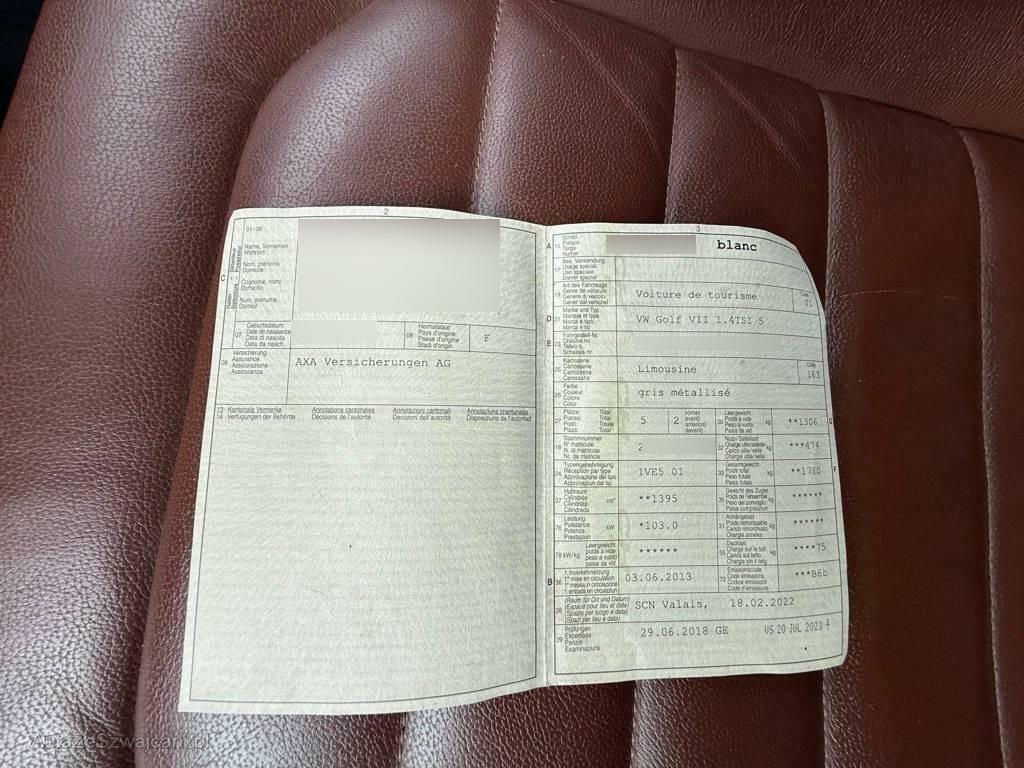 2
01-06
C
Name, Vornamen
Wohnort
Nom, prénoms
Domicile
Cognome, nomi
Domicilio
Num, prenums
Domicil
07
Geburtsdatum
Date de naissance
Data di nascita
Data da nasch.
08
Heimatstaat
Pays d'origine
Paese d'origine
Stadi d'origin
F
09
Versicherung
Assurance
Assicurazione
Assicuranza
AXA Versicherungen AG
13
14
Kantonale Vermerke
Verfügungen der Behörde
Annotations cantonales
Décisions de l'autorité
Annotazioni cantonali
Decisioni dell'autorità
Annotaziuns chantunalas
Disposiziuns da l'autoritad
3
A 15
Schild
Plaque
Targa
Numer
blanc
17
Bes. Verwendung
Usage spécial
Uso speciale
Diever spezial
19
Art des Fahrzeugs
Genre de véhicule
Genere di veicolo
Gener dal vehichel
Voiture de tourisme
Code
01
D 21
Marke und Typ
Marque et type
Marca e tipo
Marca e tip
VW Golf VII 1.4TSI 5
E 23
Fahrgestell-Nr.
Châssis no
Telaio n.
Schassis nr.
25
Karosserie
Carrosserie
Carrozzeria
Carossaria
Limousine
Code
163
26
Farbe
Couleur
Colore
Colur
gris métallisé
27
Plätze: Total
Places: Total
Posti: Totale
Plazs: Total
5
2
vorne)
avant)
anteriori)
davant)
30
Leergewicht
Poids à vide
Peso a vuoto
Paisa da vid
kg
**1306
G
18
Stammnummer
N° matricule
N. di matricola
Nr. da matricla
2
32
Nutz-/Sattellast
Charge utile/sellette
Carico utile/sella
Chargia utila/sella
kg
***474
24
Typengenehmigung
Réception par type
Approvazione del tipo
Approvaziun dal tip
1VE5 01
33
Gesamtgewicht
Poids total
Peso totale
Paisa totala
kg
**1780
F
37
Hubraum
Cylindrée
Cilindrata
Cilindrada
cm³
**1395
35
Gewicht des Zuges
Poids de l'ensemble
Peso del convoglio
Paisa cumposiziun
kg
******
76
Leistung
Puissance
Potenza
Prestaziun
kW
*103.0
31
Anhängelast
Poids remorquable
Carico rimorchiato
Chargia annexa
kg
******
78 kW/kg
Leergewicht
poids à vide
peso a vuoto
paisa da vid
******
55
Dachlast
Charge sur le toit
Carico sul tetto
Chargia sin il tetg
kg
****75
B 36
1. Inverkehrsetzung
1re mise en circulation
1a messa in circolazione
1. entrada en circulaziun
03.06.2013
72
Emissionscode
Code émissions
Codice emissioni
Code d'emissiuns
***B6b
38
(Raum für Ort und Datum)
(Espace pour lieu et date)
(Spazio per luogo e data)
(Spazi per lieu e data)
SCN Valais, 18.02.2022
39
Prüfungen
Expertises
Perizie
Examinaziuns
29.06.2018 GE
VS 20 JUL 2023
AutazeSzwajcarii.pl